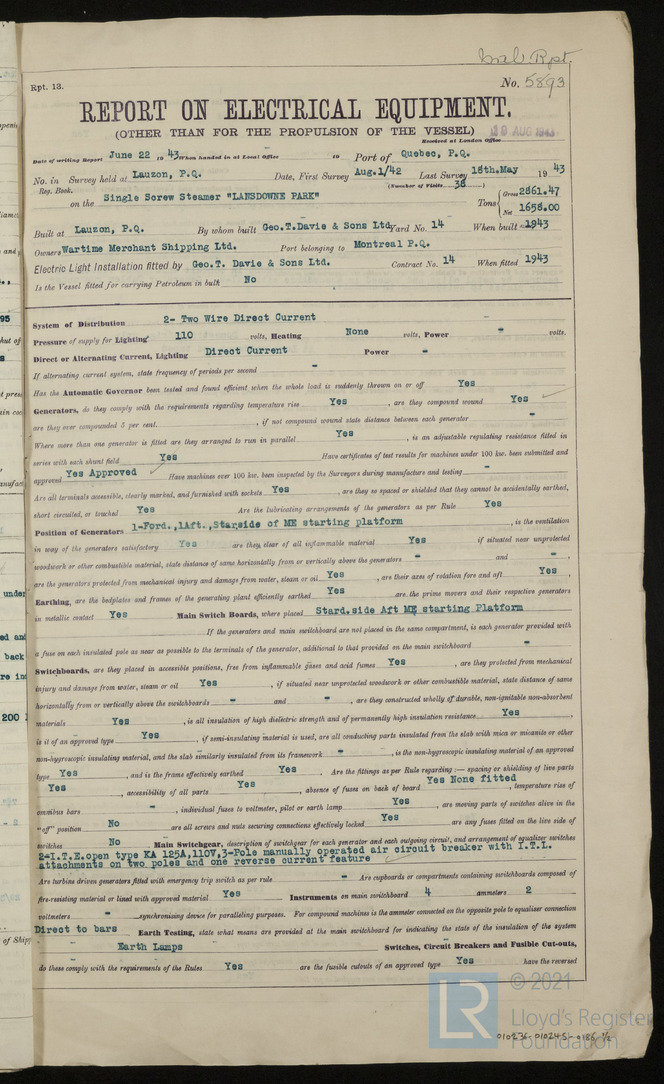 Rpt. 13.
No. 5893
REPORT ON ELECTRICAL EQUIPMENT.
(OTHER THAN FOR THE PROPULSION OF THE VESSEL) 30 AUG 1943
Received at London Office
Date of writing Report June 22 19 43 When handed in at Local Office 19 Port of Quebec, P.Q.
No. in Survey held at Lauzon, P.Q. Date, First Survey Aug.1/42 Last Survey 18th.May 19 43
Reg. Book. (Number of Visits 38 )
on the Single Screw Steamer "LANSDOWNE PARK" Tons { Gross 2861.47
Net 1658.00
Built at Lauzon, P.Q. By whom built Geo.T.Davie & Sons Ltd. Yard No. 14 When built 1943
Owners Wartime Merchant Shipping Ltd. Port belonging to Montreal P.Q.
Electric Light Installation fitted by Geo. T. Davie & Sons Ltd. Contract No. 14 When fitted 1943
Is the Vessel fitted for carrying Petroleum in bulk No
System of Distribution 2- Two Wire Direct Current
Pressure of supply for Lighting 110 volts, Heating None volts, Power - volts.
Direct or Alternating Current, Lighting Direct Current Power -
If alternating current system, state frequency of periods per second -
Has the Automatic Governor been tested and found efficient when the whole load is suddenly thrown on or off Yes
Generators, do they comply with the requirements regarding temperature rise Yes , are they compound wound Yes
are they over compounded 5 per cent. , if not compound wound state distance between each generator -
Where more than one generator is fitted are they arranged to run in parallel Yes , is an adjustable regulating resistance fitted in
series with each shunt field Yes Have certificates of test results for machines under 100 kw. been submitted and
approved Yes Approved Have machines over 100 kw. been inspected by the Surveyors during manufacture and testing -
Are all terminals accessible, clearly marked, and furnished with sockets Yes , are they so spaced or shielded that they cannot be accidentally earthed,
short circuited, or touched Yes Are the lubricating arrangements of the generators as per Rule Yes
Position of Generators 1-Ford.,1Aft.,Starside of ME starting platform , is the ventilation
in way of the generators satisfactory Yes are they, clear of all inflammable material Yes if situated near unprotected
woodwork or other combustible material, state distance of same horizontally from or vertically above the generators - and - ,
are the generators protected from mechanical injury and damage from water, steam or oil Yes , are their axes of rotation fore and aft Yes ,
Earthing, are the bedplates and frames of the generating plant efficiently earthed Yes are the prime movers and their respective generators
in metallic contact Yes Main Switch Boards, where placed Stard.side Aft ME starting Platform
If the generators and main switchboard are not placed in the same compartment, is each generator provided with
a fuse on each insulated pole as near as possible to the terminals of the generator, additional to that provided on the main switchboard -
Switchboards, are they placed in accessible positions, free from inflammable gases and acid fumes Yes , are they protected from mechanical
injury and damage from water, steam or oil Yes , if situated near unprotected woodwork or other combustible material, state distance of same
horizontally from or vertically above the switchboards - and - , are they constructed wholly of durable, non-ignitable non-absorbent
materials Yes , is all insulation of high dielectric strength and of permanently high insulation resistance Yes
is it of an approved type Yes , if semi-insulating material is used, are all conducting parts insulated from the slab with mica or micanite or other
non-hygroscopic insulating material, and the slab similarly insulated from its framework - , is the non-hygroscopic insulating material of an approved
type Yes , and is the frame effectively earthed Yes . Are the fittings as per Rule regarding:— spacing or shielding of live parts
Yes , accessibility of all parts Yes , absence of fuses on back of board Yes None fitted , temperature rise of
omnibus bars - , individual fuses to voltmeter, pilot or earth lamp Yes , are moving parts of switches alive in the
"off" position No are all screws and nuts securing connections effectively locked Yes are any fuses fitted on the live side of
switches No Main Switchgear, description of switchgear for each generator and each outgoing circuit, and arrangement of equalizer switches
2-I.T.E.open type KA 125A,110V,3-Pole manually operated air circuit breaker with I.T.L.
attachments on two poles and one reverse current feature
Are turbine driven generators fitted with emergency trip switch as per rule - Are cupboards or compartments containing switchboards composed of
fire-resisting material or lined with approved material Yes Instruments on main switchboard 4 ammeters 2
voltmeters - synchronising device for paralleling purposes. For compound machines is the ammeter connected on the opposite pole to equaliser connection
Direct to bars Earth Testing, state what means are provided at the main switchboard for indicating the state of the insulation of the system
Earth Lamps Switches, Circuit Breakers and Fusible Cut-outs,
do these comply with the requirements of the Rules Yes are the fusible cutouts of an approved type Yes have the reversed
© 2021
LR Lloyd's Register
Foundation
010236-010245-0186 1/2